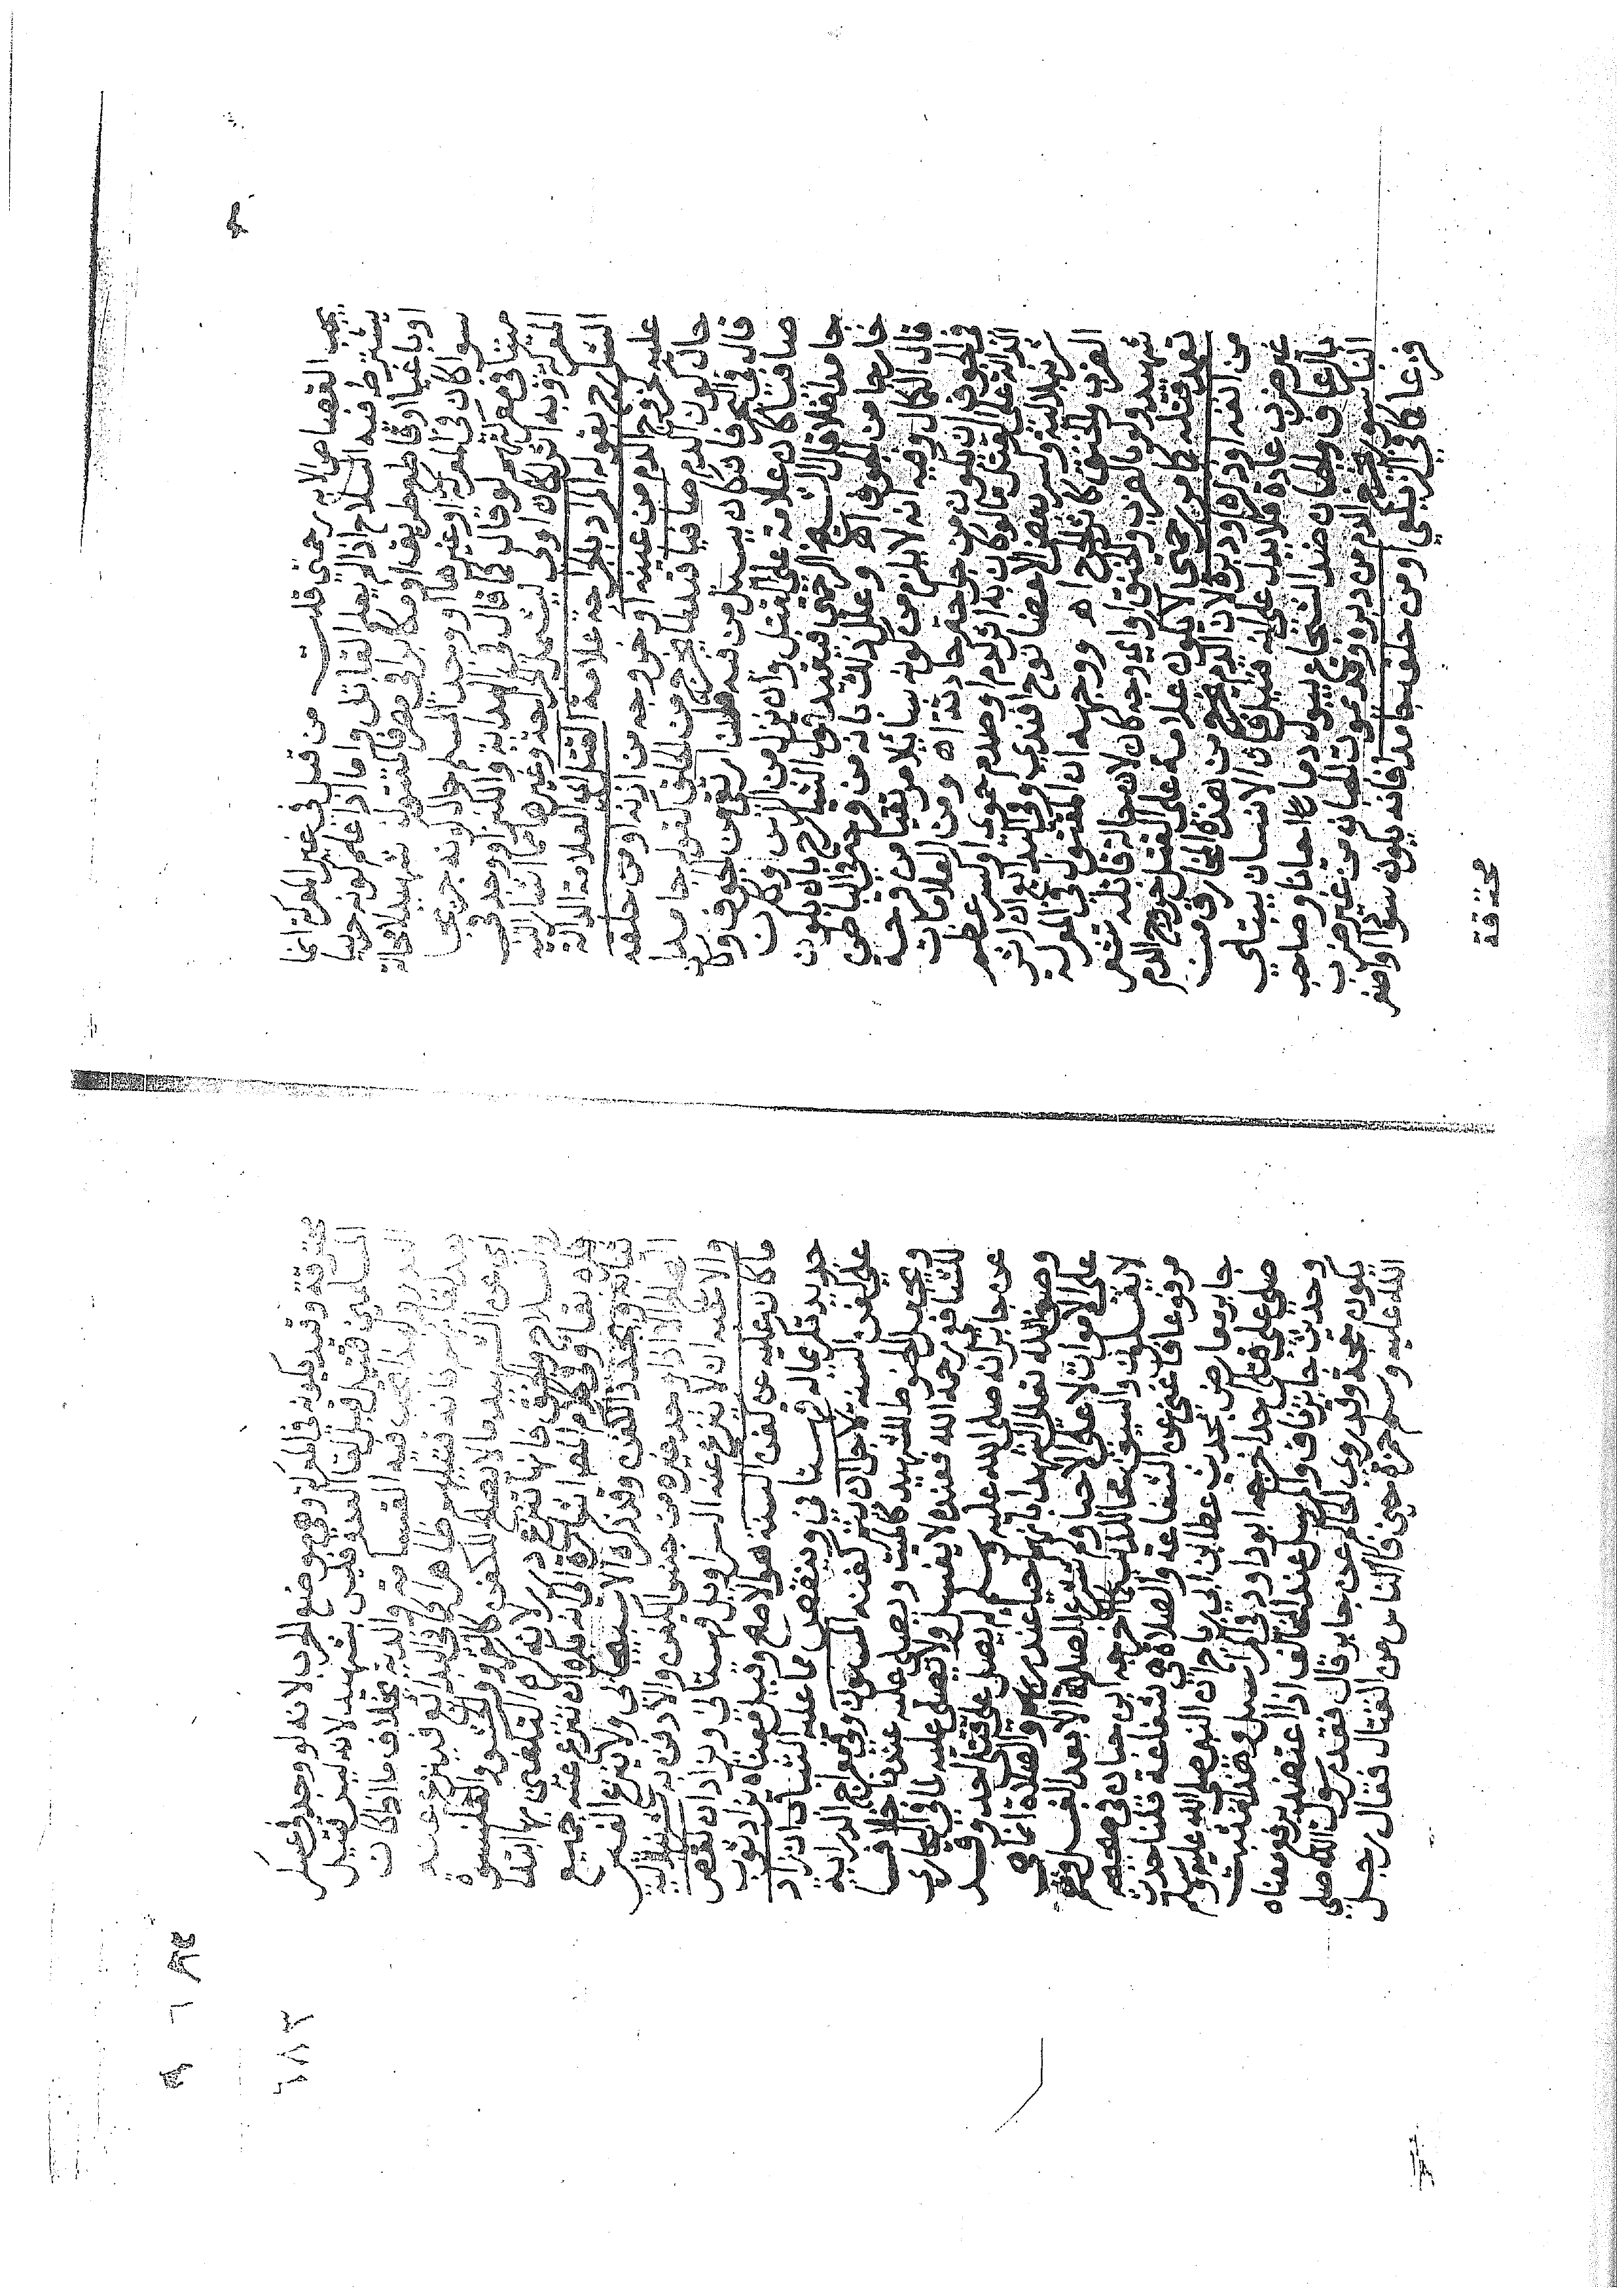 يجب القصاص الا به رحمتي قلت من قتل في غير المعركة انما
يشترط فيه السلاح اذا لم يعلم القاتل واما اذا علم كونه حربيا
او باغيا او قاطع طريق او مكابرا في مصر فمقتوله شهيد
سوا كان في المعركة او غيرها او وجد المسلم حال كونه جريحا
ميتا في معركتهم لو قال كما قال في الهداية والكنز او وجد في
المعركة وبه اثر لكان اولى ليشمل الجراحة وغيرها كما اشار اليه
الشارح بقوله المراد بالجراحة علامة القتل اي العلامة الدالة
عليه كخروج الدم من عينه او خروجه من اذنه او من حلقه
حال كون الدم صافيا قيد بما يخرج من الحلق كقوله جامدا
قال في البحر فان كان يسيل من فيه فان ارتقى من الجوف وكا
صافيا كان علامة على القتل وان نزل من الراس وكان
جامدا فلا قال الشيخ الرحمتي فيفيد قول الشارح بان يكون
خارجا من الجوف اه وعلل ذلك بانه من قرحة في الباطن
قال الكمال وفيه انه لا يلزم من كونه سائلا مرتقيا من قرحة
في الجوف ان يكون من جراحة حادثة اه ومن العلامات
الدالة على القتل ما لو كان به اثر كدم او صدم حموي او كسر عظم
شرنبلالية وكسر بعض الاعضا نوح افندي وفي البدائع ان اثر
الضرب والخنق كاثر الجرح اه ووجهه ان المقتول في المعركة
شهيد ولو بالضرب والخنق او اي وجه كان لان حالة قاتله تشعر
بتعمد قتله كما مر رحمتي لا يكون علامة على القتل خروج الدم
من انفه او ذكره او دبره لان الدم يخرج من هذه المخارق من
غير ضرب عادة فلا يدل على انه قتيل فان الانسان يبتلي
بالرعاف والجبان ضد الشجاع يبول دما احيانا وصاحب
الباسور يخرج الدم من دبره وقد يموت من غير ضرب
فزعا كما في الزيلعي او من حلقه جامدا فانه يكون سودا او صفر
محترقة
محترقة وقيد بكونه في المعركة وهو موضع الحرب لانه لو وجد في عسكر
المسلمين قتيل قبل لقا العدو فليس بشهيد لانه ليس قتيل
العدو ولهذا تجب فيه القسامة والدية بخلاف ما اذا كان
بعد لقائهم فانه قتيلهم ظاهرا كما في البدائع فينزع عنه
اي عن الشهيد ما لا يصلح للكفن كالفرو والحشو والقلنسوة
والسلاح والخف فانها تنزع درر لانه كره التكفين بها ابتدا
فكذا بقا وكلام المص اشارة الى انه يكره ان ينزع عنه جميع
ثيابه ويجدد الكفن وذكره الاسبيجابي ولا ينزع الفرو
والحشو الا اذا وجد غيره من جنس الكفن والا دفن به شرنبلالية
والاشبه ان لا ينزع عنه السراويل قهستاني ويزاد ان نقص
ما كان عليه عن كفن السنة هو الاصح وقيل معناه يزاد ثوب
جديد تكريما له قهستاني وينقص مما عليه الثياب ان زاد
على كفن السنة لاجل ان يتم كفنه المسنون وفي معراج الدراية
ويجعل الحنوط للشهيد كالميت ويصلى عليه عندنا خلاف
للشافعي رحمه الله فعنده لا يغسل ولا يصلى عليه لما في البخاري
عن جابر انه صلى الله عليه وسلم لم يصل على قتلى احد وقد
وصف الله تعالى الشهدا بانهم احيا عند ربهم والصلاة انما هي
على الاموات لا على الاحيا ولم تشرع الصلاة الا بعد الغسل وهم
لا يغسلون والسيف محا للذنوب اخرجه ابن حبان في صحيحه
مرفوعا فاغنى عن الشفاعة والصلاة هي شفاعة قلنا حديث
جابر معارض بحديث عطا بن ابي رباح ان النبي صلى الله عليه وسلم
صلى على قتلى احد اخرجه ابو داود في المراسيل وهذا مثبت
وحديث جابر ناف والمرسل عند المخالف اذا اعتضد برفع معناه
يكون حجة وقد روى الحاكم عن جابر قال فقد رسول الله صلى
الله عليه وسلم حمزة حين فا الناس من القتال فقال رجل